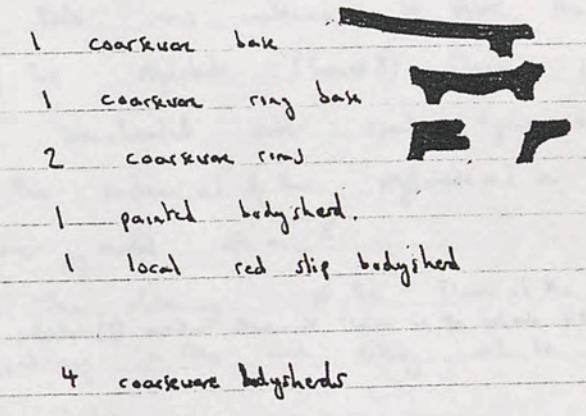 1 coarseware base
1 coarseware ring base
2 coarseware rims
1 painted bodysherd.
1 local red slip bodysherd
4 coarseware bodysherds